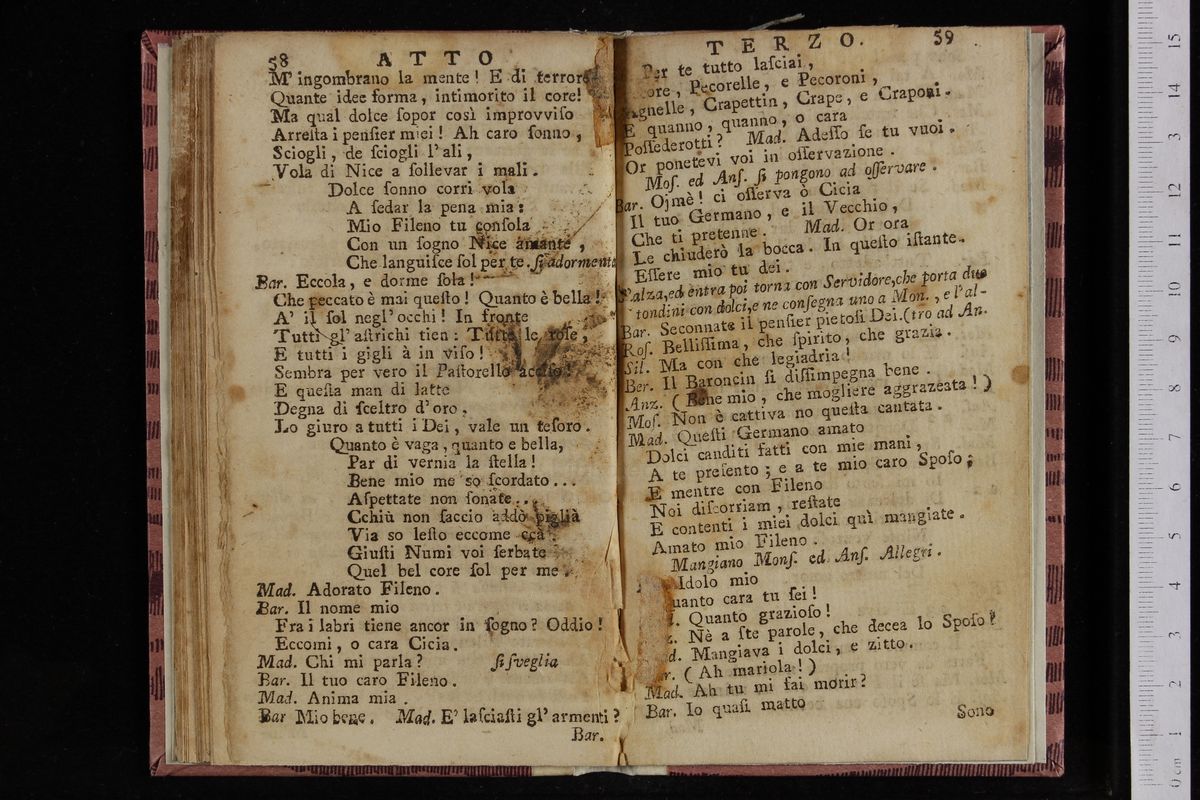 58 ATTO
M' ingombrano la mente! E di terrore
Quante idee forma, intimorito il core!
Ma qual dolce ſopor così improvviſo
Arreſta i penſier miei! Ah caro ſonno,
Sciogli, de ſciogli l'ali,
Vola di Nice a ſollevar i mali.
Dolce ſonno corri vola
A ſedar la pena mia:
Mio Fileno tu conſola
Con un ſogno Nice amante,
Che languiſce ſol per te. ſi adormenta
Bar. Eccola, e dorme ſola!
Che peccato è mai queſto! Quanto è bella!
A' il ſol negl'occhi! In fronte
Tutti gl'aſtrichi tien: Tutte le roſe,
E tutti i gigli à in viſo!
Sembra per vero il Paſtorello acceſo!
E queſta man di latte
Degna di ſceltro d'oro.
Lo giuro a tutti i Dei, vale un teſoro.
Quanto è vaga, quanto e bella,
Par di vernia la ſtella!
Bene mio me so ſcordato...
Aſpettate non ſonate...
Cchiù non faccio addò piglià
Via so leſto eccome ccà.
Giuſti Numi voi ſerbate
Quel bel core ſol per me.
Mad. Adorato Fileno.
Bar. Il nome mio
Fra i labri tiene ancor in ſogno? Oddio!
Eccomi, o cara Cicia.
Mad. Chi mi parla? ſi ſveglia
Bar. Il tuo caro Fileno.
Mad. Anima mia.
Bar Mio bene. Mad. E' laſciaſti gl'armenti?
Bar.
TERZO. 59
Per te tutto laſciai,
Pecorelle, e Pecoroni,
Crapettin, Crape, e Craponi.
E quanno, quanno, o cara
Poſſederotti? Mad. Adeſſo ſe tu vuoi.
Or ponetevi voi in oſſervazione.
Moſ. ed Anſ. ſi pongono ad oſſervare.
Bar. Ojmè! ci oſſerva ò Cicia
Il tuo Germano, e il Vecchio,
Che ti pretenne. Mad. Or ora
Le chiuderò la bocca. In queſto iſtante.
Eſſere mio tu dei.
S'alza, ed entra poi torna con Servidore, che porta due
tondini con dolci, e ne conſegna uno a Mon., e l'al-
Bar. Seconnate il penſier pietoſi Dei. (tro ad An.
Roſ. Belliſſima, che ſpirito, che grazia.
Sil. Ma con che legiadria!
Ber. Il Baroncin ſi diſſimpegna bene.
Anz. (Bene mio, che mogliere aggrazeata!)
Moſ. Non è cattiva no queſta cantata.
Mad. Queſti Germano amato
Dolci canditi fatti con mie mani,
A te preſento; e a te mio caro Spoſo;
E mentre con Fileno
Noi diſcorriam, reſtate
E contenti i miei dolci quì mangiate.
Amato mio Fileno.
Mangiano Monſ. ed Anſ. Allegri.
Idolo mio
uanto cara tu ſei!
Quanto grazioſo!
Nè a ſte parole, che decea lo Spoſo?
Mangiava i dolci, e zitto.
(Ah mariola!)
Mad. Ah tu mi fai morir?
Bar. Io quaſi matto
Sono